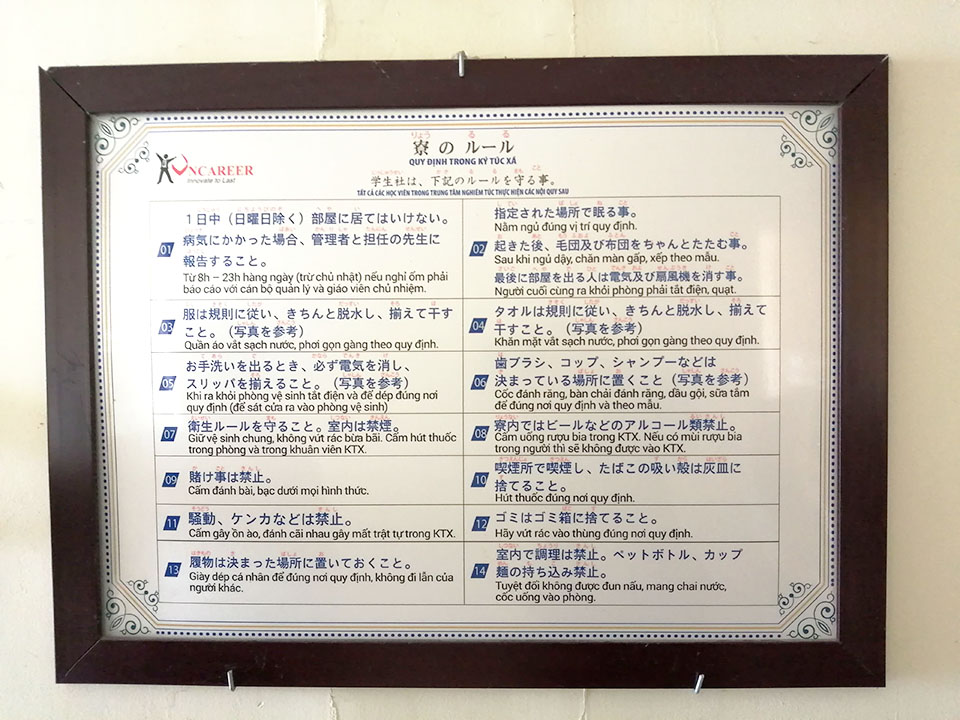 VNCAREER
Innovate to Last
寮のルール
QUY ĐỊNH TRONG KÝ TÚC XÁ
学生社は、下記のルールを守る事。
TẤT CẢ CÁC HỌC VIÊN TRONG TRUNG TÂM NGHIÊM TÚC THỰC HIỆN CÁC NỘI QUY SAU
01
1日中（日曜日除く）部屋に居てはいけない。
病気にかかった場合、管理者と担任の先生に
報告すること。
Từ 8h – 23h hàng ngày (trừ chủ nhật) nếu nghỉ ốm phải
báo cáo với cán bộ quản lý và giáo viên chủ nhiệm.
02
指定された場所で眠る事。
Nằm ngủ đúng vị trí quy định.
起きた後、毛団及び布団をちゃんとたたむ事。
Sau khi ngủ dậy, chăn màn gấp, xếp theo mẫu.
最後に部屋を出る人は電気及び扇風機を消す事。
Người cuối cùng ra khỏi phòng phải tắt điện, quạt.
03
服は規則に従い、きちんと脱水し、揃えて干す
こと。（写真を参考）
Quần áo vắt sạch nước, phơi gọn gàng theo quy định.
04
タオルは規則に従い、きちんと脱水し、揃えて
干すこと。（写真を参考）
Khăn mặt vắt sạch nước, phơi gọn gàng theo quy định.
05
お手洗いを出るとき、必ず電気を消し、
スリッパを揃えること。（写真を参考）
Khi ra khỏi phòng vệ sinh tắt điện và để dép đúng nơi
quy định (để sát cửa ra vào phòng vệ sinh)
06
歯ブラシ、コップ、シャンプーなどは
決まっている場所に置くこと（写真を参考）
Cốc đánh răng, bàn chải đánh răng, dầu gội, sữa tắm
để đúng nơi quy định và theo mẫu.
07
衛生ルールを守ること。室内は禁煙。
Giữ vệ sinh chung, không vứt rác bừa bãi. Cấm hút thuốc
trong phòng và trong khuân viên KTX.
08
寮内ではビールなどのアルコール類禁止。
Cấm uống rượu bia trong KTX. Nếu có mùi rượu bia
trong người thì sẽ không được vào KTX.
09
賭け事は禁止。
Cấm đánh bài, bạc dưới mọi hình thức.
10
喫煙所で喫煙し、たばこの吸い殻は灰皿に
捨てること。
Hút thuốc đúng nơi quy định.
11
騒動、ケンカなどは禁止。
Cấm gây ồn ào, đánh cãi nhau gây mất trật tự trong KTX.
12
ゴミはゴミ箱に捨てること。
Hãy vứt rác vào thùng đúng nơi quy định.
13
履物は決まった場所に置いておくこと。
Giày dép cá nhân để đúng nơi quy định, không đi lẫn của
người khác.
14
室内で調理は禁止。ペットボトル、カップ
麺の持ち込み禁止。
Tuyệt đối không được đun nấu, mang chai nước,
cốc uống vào phòng.